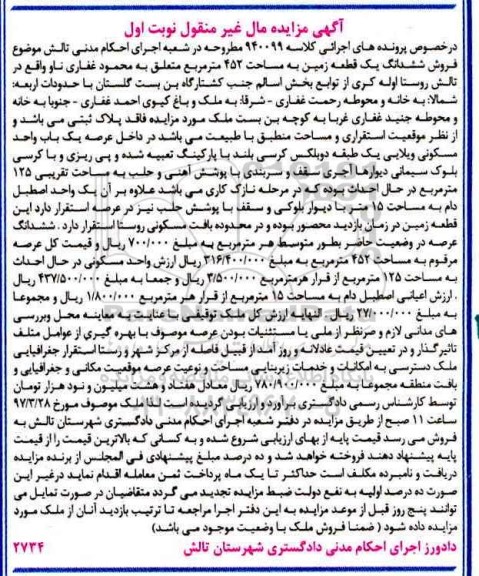 آگهی مزایده مال غیر منقول نوبت اول
درخصوص پرونده های اجرائی کلاسه ۹۴۰۰۹۹ مطروحه در شعبه اجرای احکام مدنی تالش موضوع
فروش ششدانگ یک قطعه زمین به مساحت ۴۵۲ مترمربع متعلق به محمود غفاری ناو واقع در
تالش روستا اوله کری از توابع بخش اسالم جنب کشتارگاه بن بست گلستان با حدودات اربعه:
شمالا: به خانه و محوطه رحمت غفاری - شرقا: به ملک و باغ کیوی احمد غفاری - جنوبا به خانه
و محوطه جنید غفاری غربا به کوچه بن بست ملک مورد مزایده فاقد پلاک ثبتی می باشد و
از نظر موقعیت استقراری و مساحت منطبق با طبیعت می باشد در داخل عرصه یک باب واحد
مسکونی ویلایی یک طبقه دوبلکس کرسی بلند با پارکینگ تعبیه شده و پی ریزی و با کرسی
بلوک سیمانی دیوارها آجری سقف و سربندی با پوشش آهنی و حلب به مساحت تقریبی ۱۲۵
مترمربع در حال احداث بوده که در مرحله نازک کاری می باشد علاوه بر آن یک واحد اصطبل
دام به مساحت ۱۵ متر با دیوار بلوکی و سقف با پوشش حلب نیز در عرصه استقرار دارد این
قطعه زمین در زمان بازدید محصور بوده و در محدوده بافت مسکونی روستا استقرار دارد. ششدانگ
عرصه در وضعیت حاضر بطور متوسط هر مترمربع به مبلغ ۷۰۰/۰۰۰ ریال و قیمت کل عرصه
مرقوم به مساحت ۴۵۲ مترمربع به مبلغ ۳۱۶/۴۰۰/۰۰۰ ریال ارزش واحد مسکونی در حال احداث
به مساحت ۱۲۵ مترمربع از قرار هرمترمربع ۳/۵۰۰/۰۰۰ ریال و جمعا به مبلغ ۴۳۷/۵۰۰/۰۰۰ ریال
. ارزش اعیانی اصطبل دام به مساحت ۱۵ مترمربع از قرار هر مترمربع ۱/۸۰۰/۰۰۰ ریال و مجموعا
به مبلغ ۲۷/۰۰۰/۰۰۰ ریال. النهایه ارزش کل ملک توقیفی با عنایت به معاینه محل وبررسی
های مدانی لازم و صرنظر از ملی یا مستثنیات بودن عرصه موصوف با بهره گیری از عوامل متلف
تاثیرگذار و در تعیین قیمت عادلانه و روز آمد از قبیل فاصله از مرکز شهر و رستا استقرار جغرافیایی
ملک دسترسی به امکانات و خدمات زیربنایی مساحت و نوعیت عرصه موقعیت مکانی و جغرافیایی و
بافت منطقه مجموعا به مبلغ ۷۸۰/۹۰۰/۰۰۰ ریال معادل هفتاد و هشت میلیون و نود هزار تومان
توسط کارشناس رسمی دادگستری برآورد و ارزیابی گردیده است لذا ملک موصوف مورخ ۹۷/۳/۲۸
ساعت ۱۱ صبح از طریق مزایده در دفتر شعبه اجرای احکام مدنی دادگستری شهرستان تالش به
فروش می رسد قیمت پایه از بهای ارزیابی شروع شده و به کسانی که بالاترین قیمت را از قیمت
پایه پیشنهاد دهند فروخته خواهد شد و ده درصد مبلغ پیشنهادی فی المجلس از برنده مزایده
دریافت و نامبرده مکلف است حداکثر تا یک ماه پرداخت ثمن معامله اقدام نماید درغیر این
صورت ده درصد اولیه به نفع دولت ضبط مزایده تجدید می گردد متقاضیان در صورت تمایل می
توانند پنج روز قبل از موعد مزایده به این دفتر اجرا مراجعه تا ترتیب بازدید آنان از ملک مورد
مزایده داده شود ( ضمنا فروش ملک با وضعیت موجود می باشد)
دادورز اجرای احکام مدنی دادگستری شهرستان تالش ۲۷۳۴